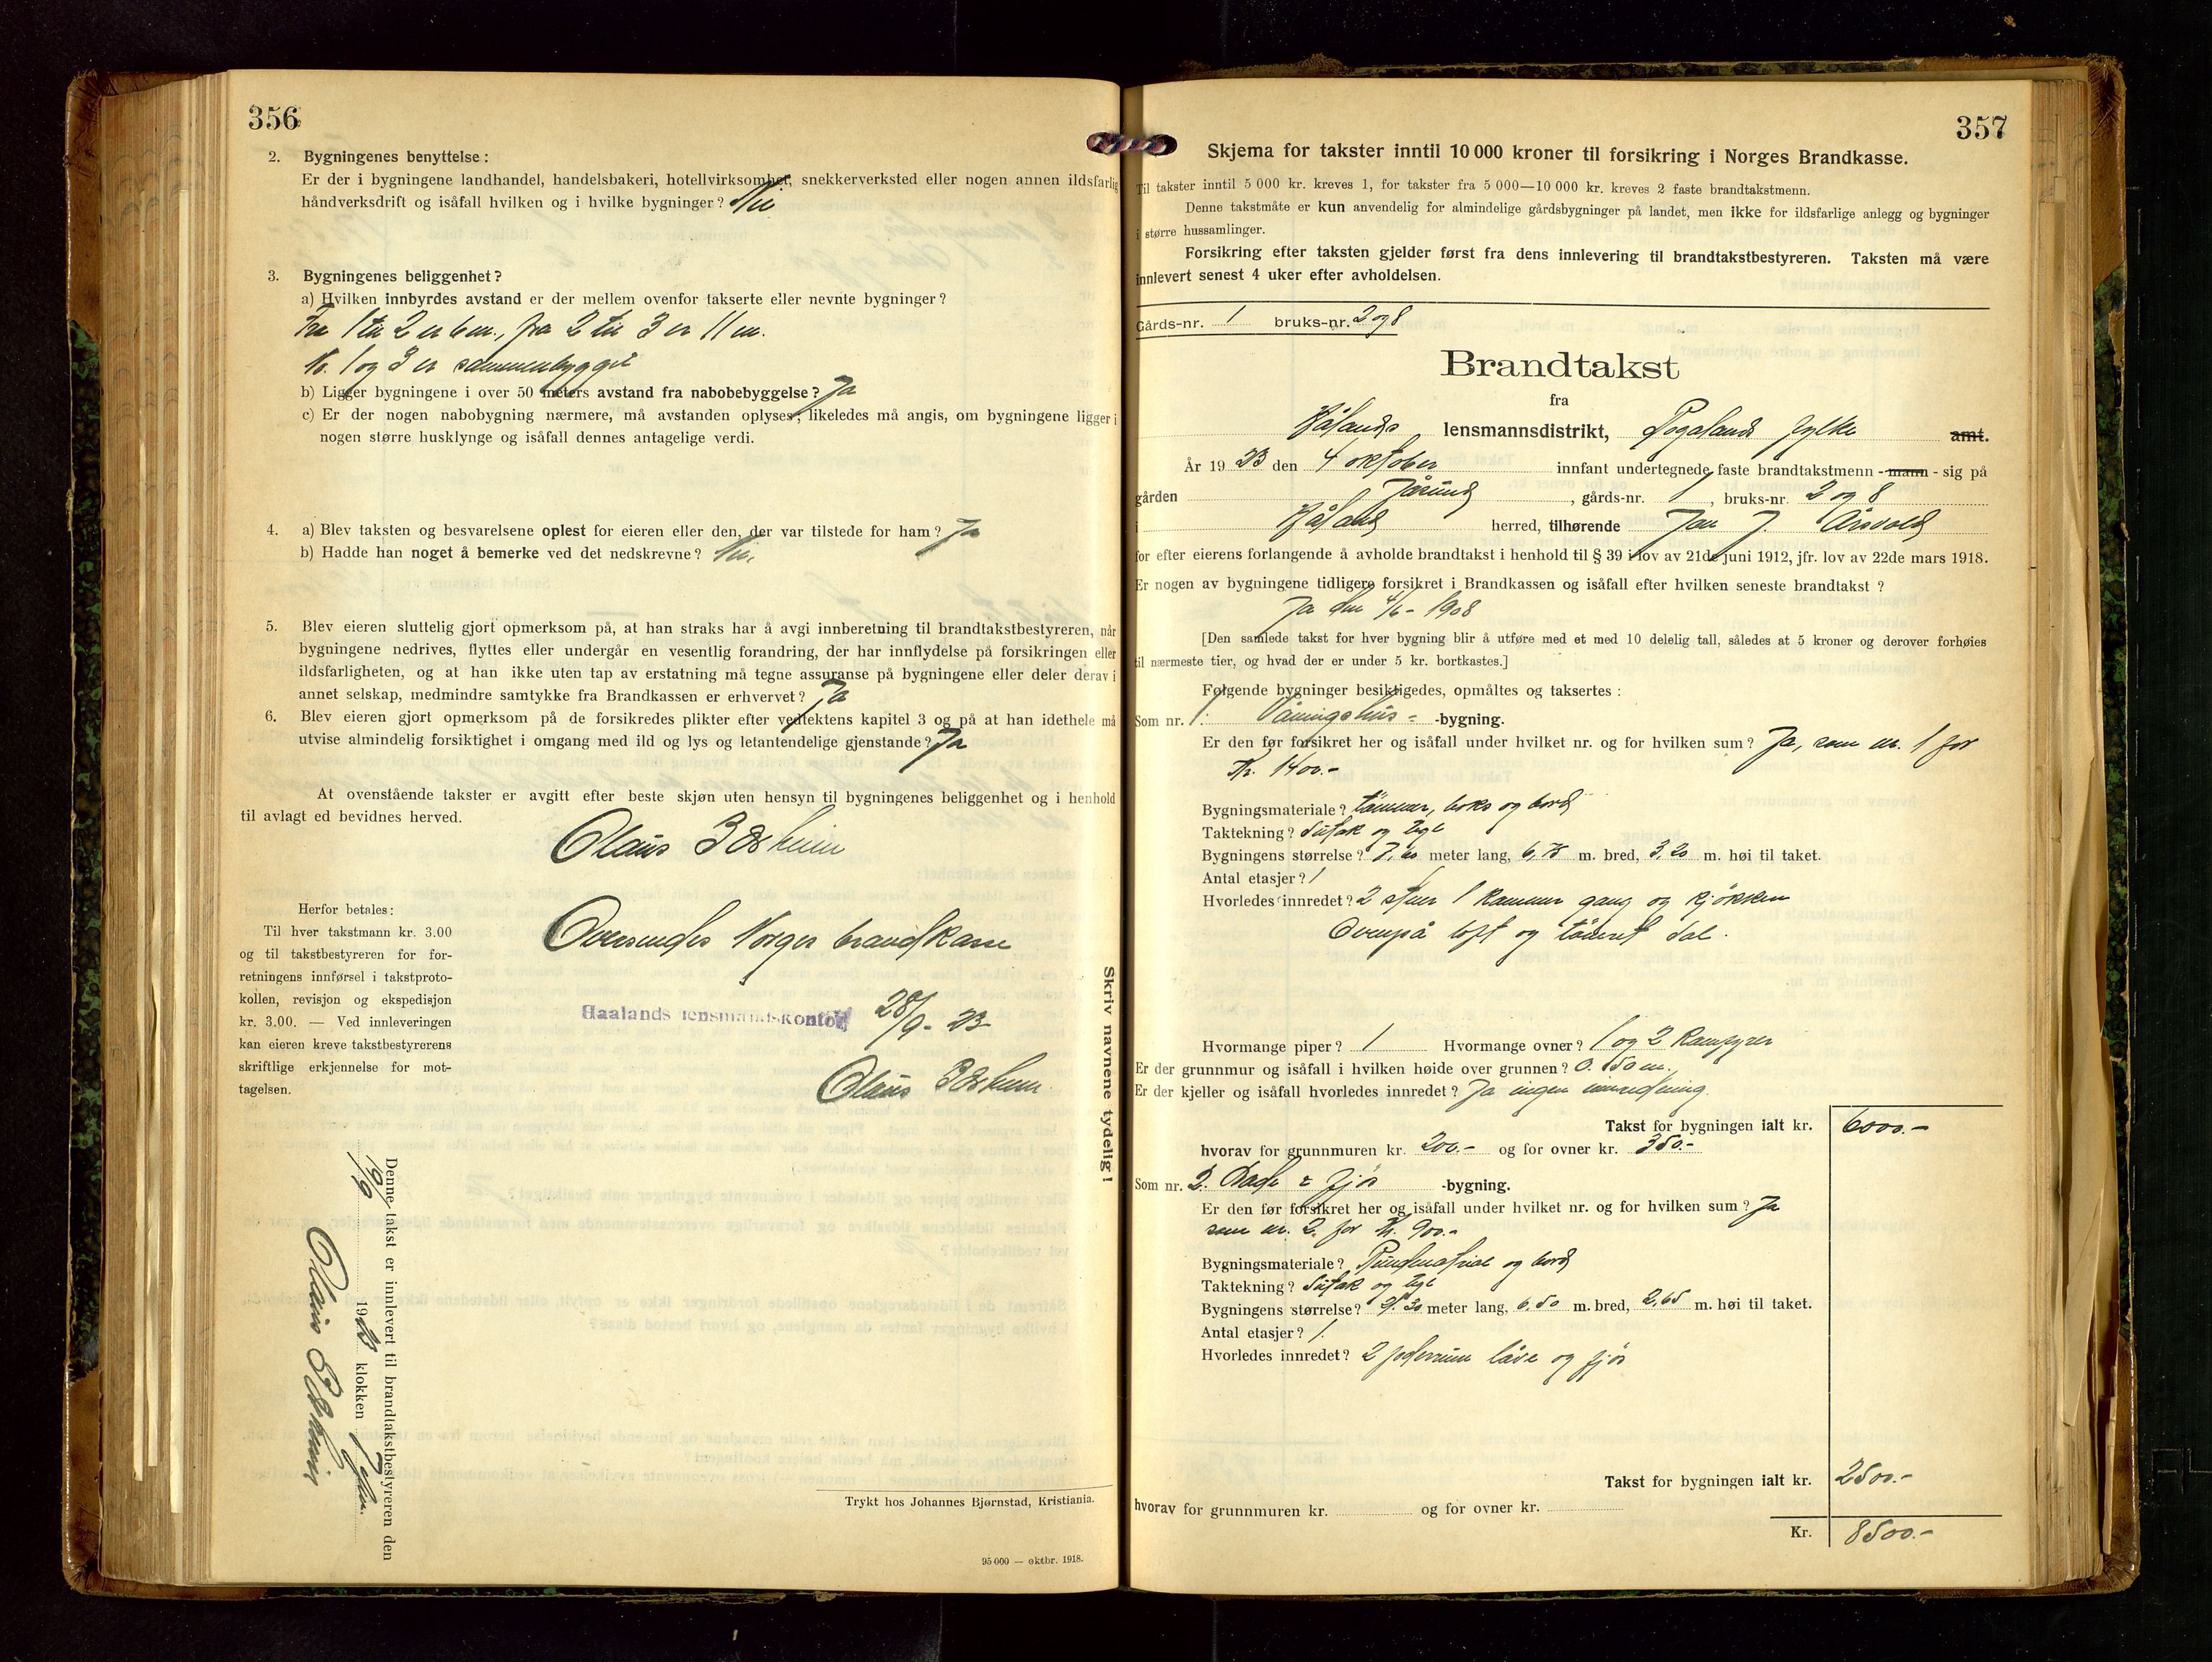 356
2. Bygningenes benyttelse:
Er der i bygningene landhandel, handelsbakeri, hotellvirksomhet, snekkerverksted eller nogen annen ildsfarlig
håndverksdrift og isåfall hvilken og i hvilke bygninger? Nei
3. Bygningenes beliggenhet?
a) Hvilken innbyrdes avstand er der mellem ovenfor takserte eller nevnte bygninger?
Fra 1 til 2 er 6 m., fra 2 til 3 er 11 m.
No. 1 og 3 er sammenbygget
b) Ligger bygningene i over 50 meters avstand fra nabobebyggelse? Ja
c) Er der nogen nabobygning nærmere, må avstanden oplyses; likeledes må angis, om bygningene ligger i
nogen større husklynge og isåfall dennes antagelige verdi.
4. a) Blev taksten og besvarelsene oplest for eieren eller den, der var tilstede for ham? Ja
b) Hadde han noget å bemerke ved det nedskrevne? Nei.
5. Blev eieren sluttelig gjort opmerksom på, at han straks har å avgi innberetning til brandtakstbestyreren, når
bygningene nedrives, flyttes eller undergår en vesentlig forandring, der har innflydelse på forsikringen eller
ildsfarligheten, og at han ikke uten tap av erstatning må tegne assuranse på bygningene eller deler derav i
annet selskap, medmindre samtykke fra Brandkassen er erhvervet? Ja
6. Blev eieren gjort opmerksom på de forsikredes plikter efter vedtektens kapitel 3 og på at han idethele må
utvise almindelig forsiktighet i omgang med ild og lys og letantendelige gjenstande? Ja
At ovenstående takster er avgitt efter beste skjøn uten hensyn til bygningenes beliggenhet og i henhold
til avlagt ed bevidnes herved.
Olaus
Herfor betales:
Til hver takstmann kr. 3.00
og til takstbestyreren for for-
retningens innførsel i takstproto-
kollen, revisjon og ekspedisjon
kr. 3.00. — Ved innleveringen
kan eieren kreve takstbestyrerens
skriftlige erkjennelse for mot-
tagelsen.
Oversendes Norges brandkasse
Haalands lensmandskontor 28/9- 23
Olaus
Skriv navnene tydelig!
Denne takst er innlevert til brandtakstbestyreren den
19/9 1923 klokken 1
Olaus
Trykt hos Johannes Bjørnstad, Kristiania.
95 000 — oktbr. 1918.
357
Skjema for takster inntil 10 000 kroner til forsikring i Norges Brandkasse.
Til takster inntil 5 000 kr. kreves 1, for takster fra 5 000—10 000 kr. kreves 2 faste brandtakstmenn.
Denne takstmåte er kun anvendelig for almindelige gårdsbygninger på landet, men ikke for ildsfarlige anlegg og bygninger
i større hussamlinger.
Forsikring efter taksten gjelder først fra dens innlevering til brandtakstbestyreren. Taksten må være
innlevert senest 4 uker efter avholdelsen.
Gårds-nr. 1 bruks-nr. 2 og 8
Brandtakst
fra
Hålands lensmannsdistrikt, Rogaland fylke amt.
År 19 23 den 4 oktober innfant undertegnede faste brandtakstmenn - mann - sig på
gården Jåsund, gårds-nr. 1, bruks-nr. 2 og 8
i Håland herred, tilhørende Jan J. Årsvold
for efter eierens forlangende å avholde brandtakst i henhold til § 39 i lov av 21de juni 1912, jfr. lov av 22de mars 1918.
Er nogen av bygningene tidligere forsikret i Brandkassen og isåfall efter hvilken seneste brandtakst?
Ja den 4/6 - 1908
[Den samlede takst for hver bygning blir å utføre med et med 10 delelig tall, således at 5 kroner og derover forhøies
til nærmeste tier, og hvad der er under 5 kr. bortkastes.]
Følgende bygninger besiktigedes, opmåltes og taksertes:
Som nr. 1. Våningshus- -bygning.
Er den før forsikret her og isåfall under hvilket nr. og for hvilken sum? Ja, som nr. 1 for
Kr. 1400.-
Bygningsmateriale? tømmer, boks og bord
Taktekning? Sutak og tegl
Bygningens størrelse? 7,60 meter lang, 6,75 m. bred, 3,20 m. høi til taket.
Antal etasjer? 1
Hvorledes innredet? 2 stuer 1 kammer gang og kjøkken
Ovenpå loft og tømret sal.
Hvormange piper? 1 Hvormange ovner? 1 og 2 kamyrer
Er der grunnmur og isåfall i hvilken høide over grunnen? 0.50 m.
Er der kjeller og isåfall hvorledes innredet? Ja ingen innredning.
Takst for bygningen ialt kr. 6000.-
hvorav for grunnmuren kr. 200.- og for ovner kr. 350.-
Som nr. 2. Lade & fjøs -bygning.
Er den før forsikret her og isåfall under hvilket nr. og for hvilken sum? Ja
som nr. 2 for Kr. 900.-
Bygningsmateriale? og bord
Taktekning? Sutak og tegl
Bygningens størrelse? meter lang, 6,50 m. bred, 2,65 m. høi til taket.
Antal etasjer? 1.
Hvorledes innredet? 2 foderrum låve og fjøs
Takst for bygningen ialt kr. 2500.-
hvorav for grunnmuren kr. og for ovner kr.
Kr. 8500.-